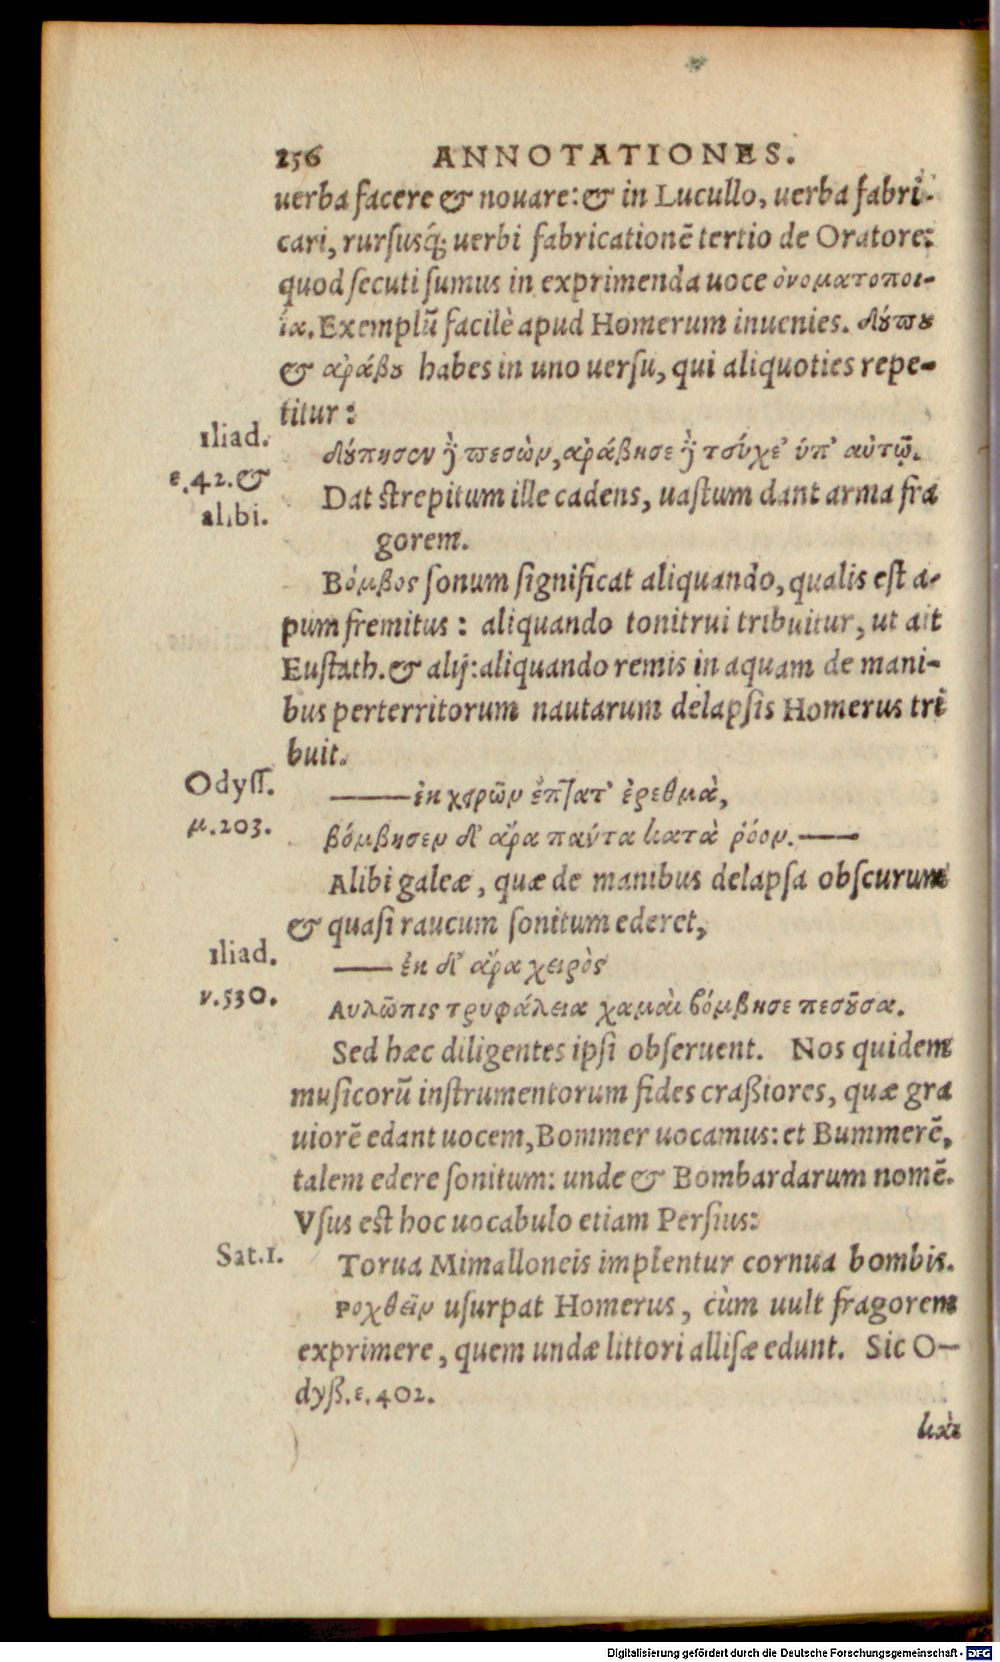 256 ANNOTATIONES.
uerba facere & nouare: & in Lucullo, uerba fabri-
cari, rursusq́; uerbi fabricationē tertio de Oratore:
quod secuti sumus in exprimenda uoce ὀνοματοποι-
ία. Exemplū facilè apud Homerum inuenies. δούπου
& ἀράβου habes in uno uersu, qui aliquoties repe-
titur:
Iliad.
ε.42. &
alibi.
δούπησεν δὲ πεσὼν, ἀράβησε δὲ τεύχε' ἐπ' αὐτῷ.
Dat strepitum ille cadens, uastum dant arma fra
gorem.
Βόμβος sonum significat aliquando, qualis est a-
pum fremitus: aliquando tonitrui tribuitur, ut ait
Eustath. & alij: aliquando remis in aquam de mani-
bus perterritorum nautarum delapsis Homerus tri
buit.
Odyss.
μ.203.
—— ἐκ χειρῶν ἔπτατ' ἐρεθμὰ,
βόμβησεν δ' ἄρα πάντα κατὰ ῥόον. ——
Alibi galeæ, quæ de manibus delapsa obscurum
& quasi raucum sonitum ederet,
Iliad.
ν.530.
—— ἐκ δ' ἄρα χειρὸς
Αυλῶπις τρυφάλεια χαμαὶ βόμβησε πεσοῦσα.
Sed hæc diligentes ipsi obseruent. Nos quidem
musicorū instrumentorum fides craßiores, quæ gra
uiorē edant uocem, Bommer uocamus: et Bummerē,
talem edere sonitum: unde & Bombardarum nomē.
Vsus est hoc uocabulo etiam Persius:
Sat.1.
Torua Mimalloneis implentur cornua bombis.
Ροχθεῖν usurpat Homerus, cùm uult fragorem
exprimere, quem undæ littori allisæ edunt. Sic O-
dyß.ε.402.
καὶ
Digitalisierung gefördert durch die Deutsche Forschungsgemeinschaft - DFG